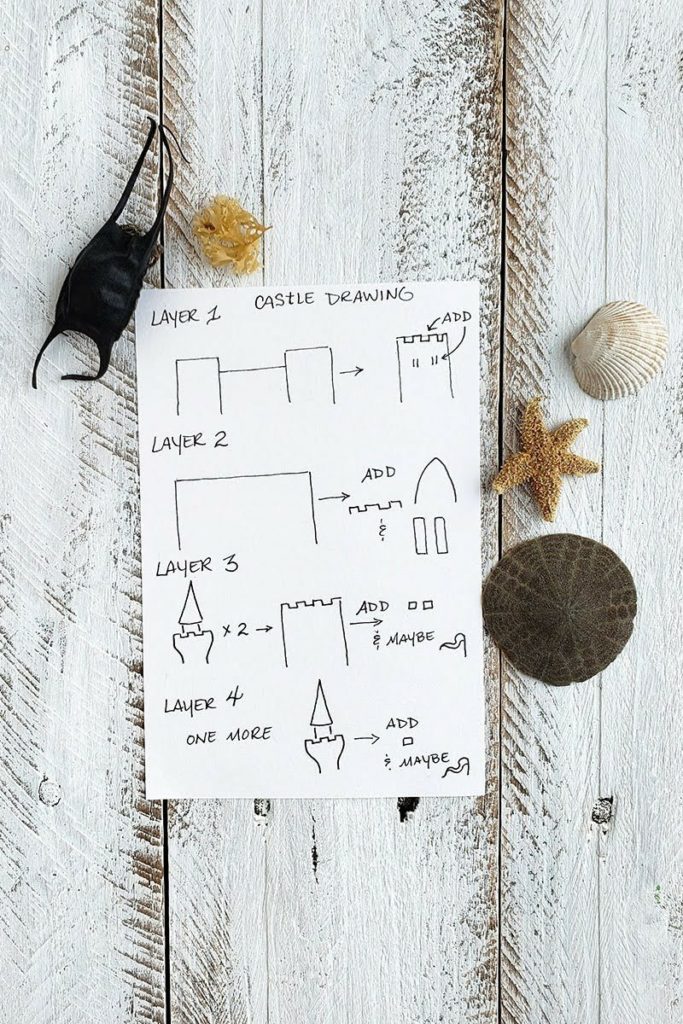 CASTLE DRAWING
LAYER 1
ADD
LAYER 2
ADD
&
LAYER 3
x 2
ADD
& MAYBE
LAYER 4
ONE MORE
ADD
& MAYBE